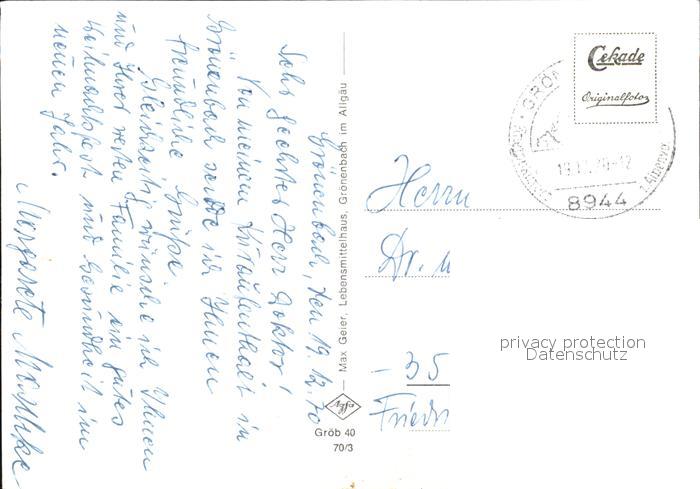 Grönenbach, den 19.12.70
Sehr geehrter Herr Doktor!
Von meinem Kuraufenthalt in
Grönenbach sende ich Ihnen
freundliche Grüße
Gleichzeitig wünsche ich Ihnen
und Ihrer werten Familie ein gutes
Weihnachtsfest und Gesundheit im
neuen Jahr.
Margarete
Max Geier, Lebensmittelhaus, Grönenbach im Allgäu
Agfa
Gröb 40
70/3
Cekade
Originalfoto
GRÖN
8944
Herrn
Dr.
- 35
Friedr
privacy protection
Datenschutz